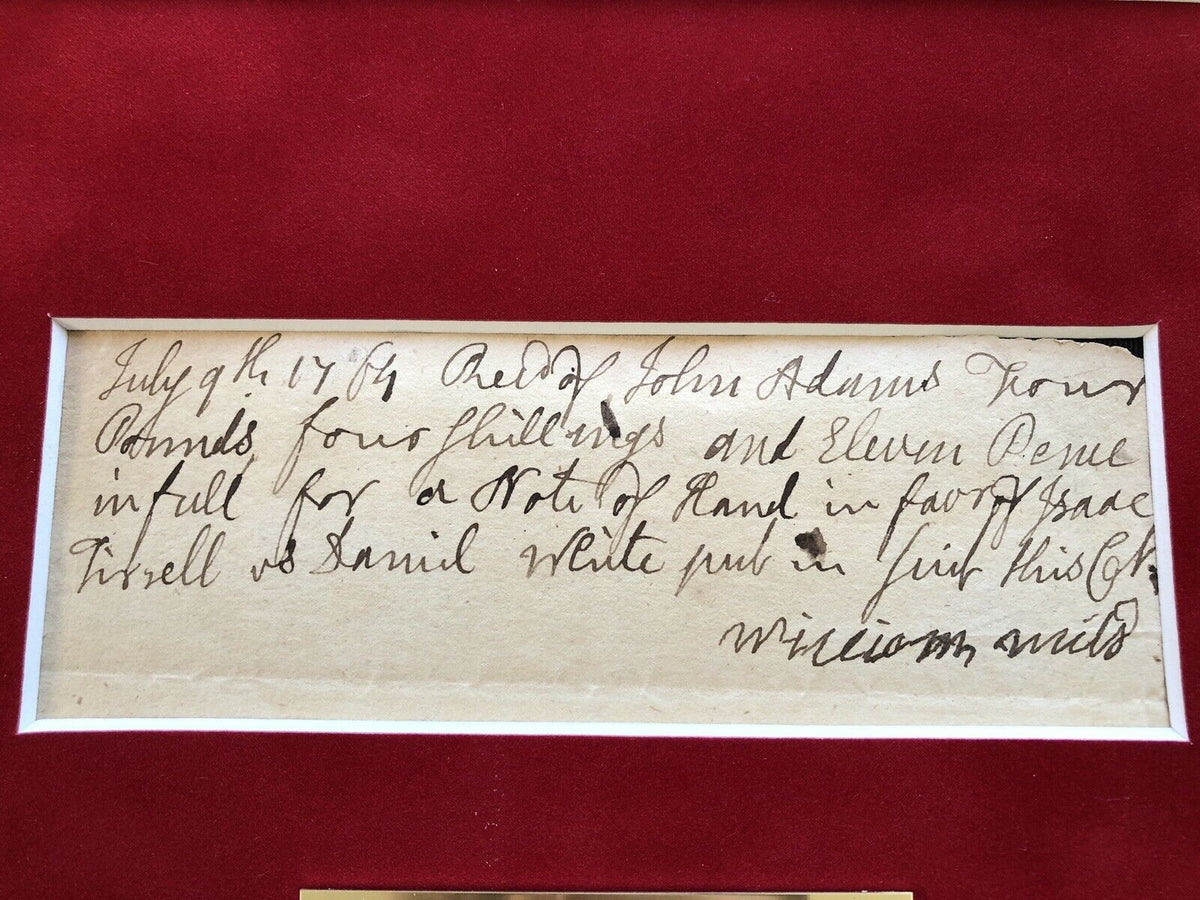 July 9th 1764 Recd of John Adams Four
Pounds, four Shillings and Eleven Pence
in full for a Note of Hand in favr of Isaac
Tirrell vs Daniel White put in suit this Ct.
William mils